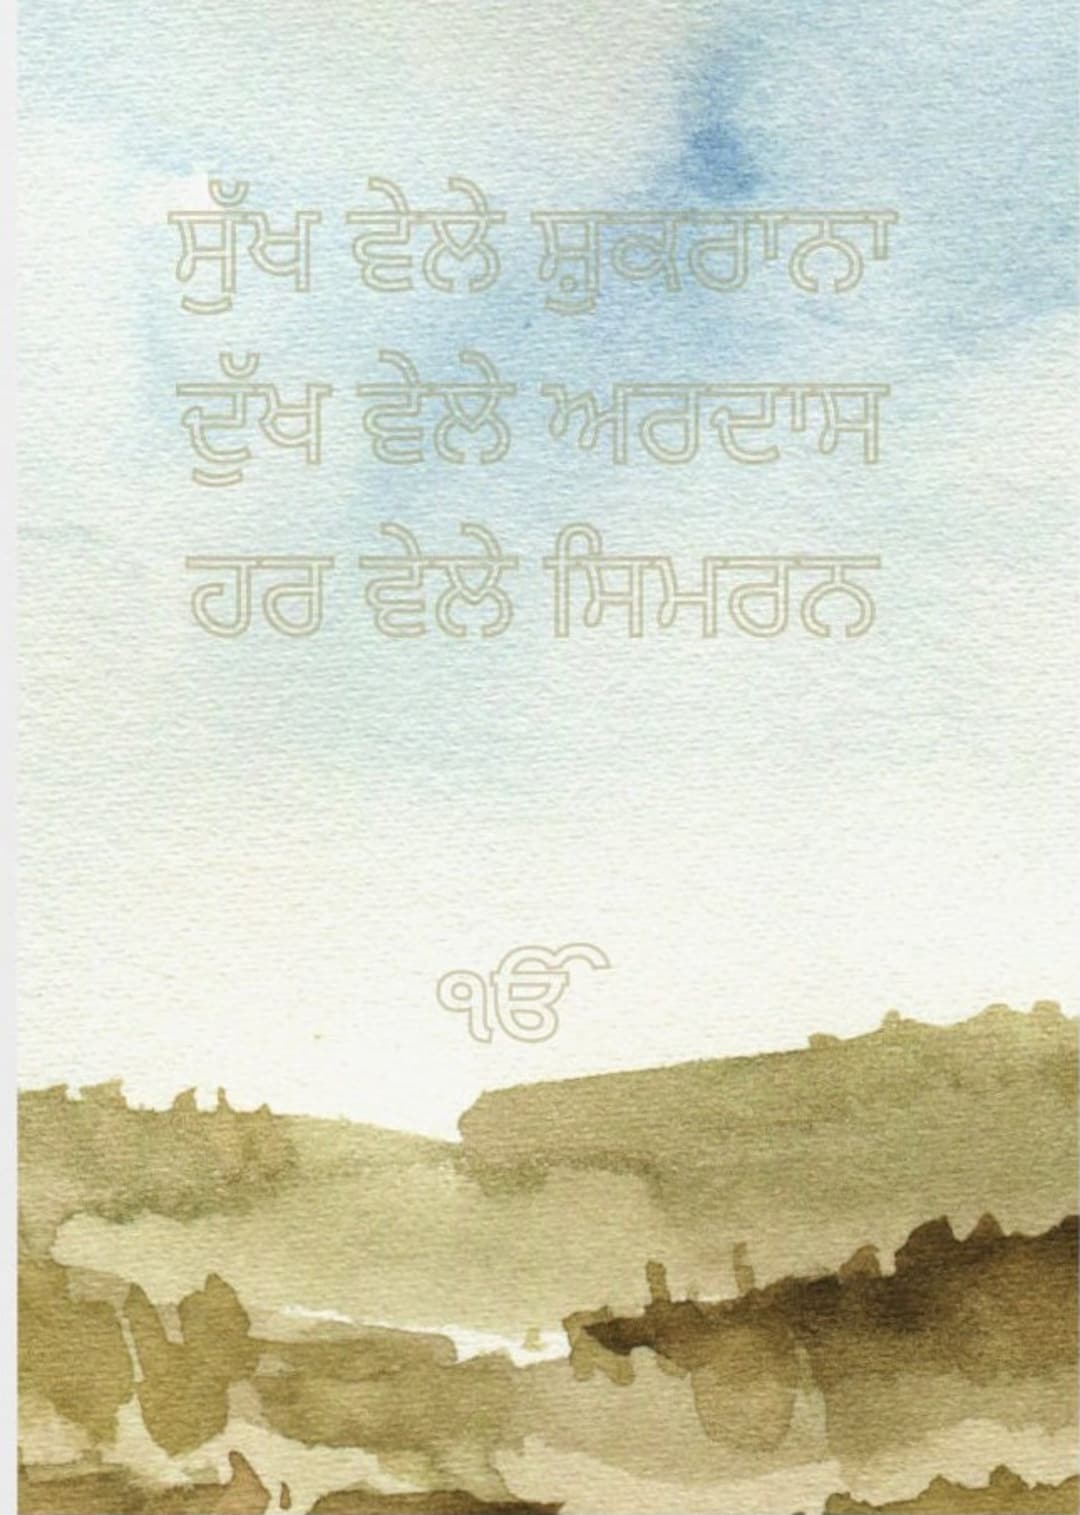 ਸੁੱਖ ਵੇਲੇ ਸ਼ੁਕਰਾਨਾ
ਦੁੱਖ ਵੇਲੇ ਅਰਦਾਸ
ਹਰ ਵੇਲੇ ਸਿਮਰਨ
ੴ